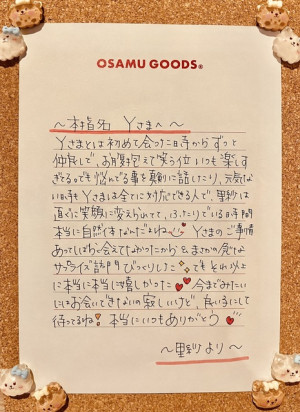 OSAMU GOODS®
〜本指名 Yさまへ〜
Yさまとは初めて会った日時からずっと
仲良しで、お腹抱えて笑う位いつも楽し
すぎるのでも悩んでる事を真剣に話したり、元気ない
日もYさまは全てに対応できる人で、里紗は
直ぐに笑顔に変えられてて、ふたりでいる時間
本当に自然体なんだよね
Yさまのご事情
あってしばらく会えてなかったからまさかの食な
サプライズ訪問びっくりした でもそれ以上
に本当に本当に嬉しかった 今までみたい
にはお会いできないの寂しいけど、良い子にして
待ってるね 本当にいつもありがとう
〜里紗より〜